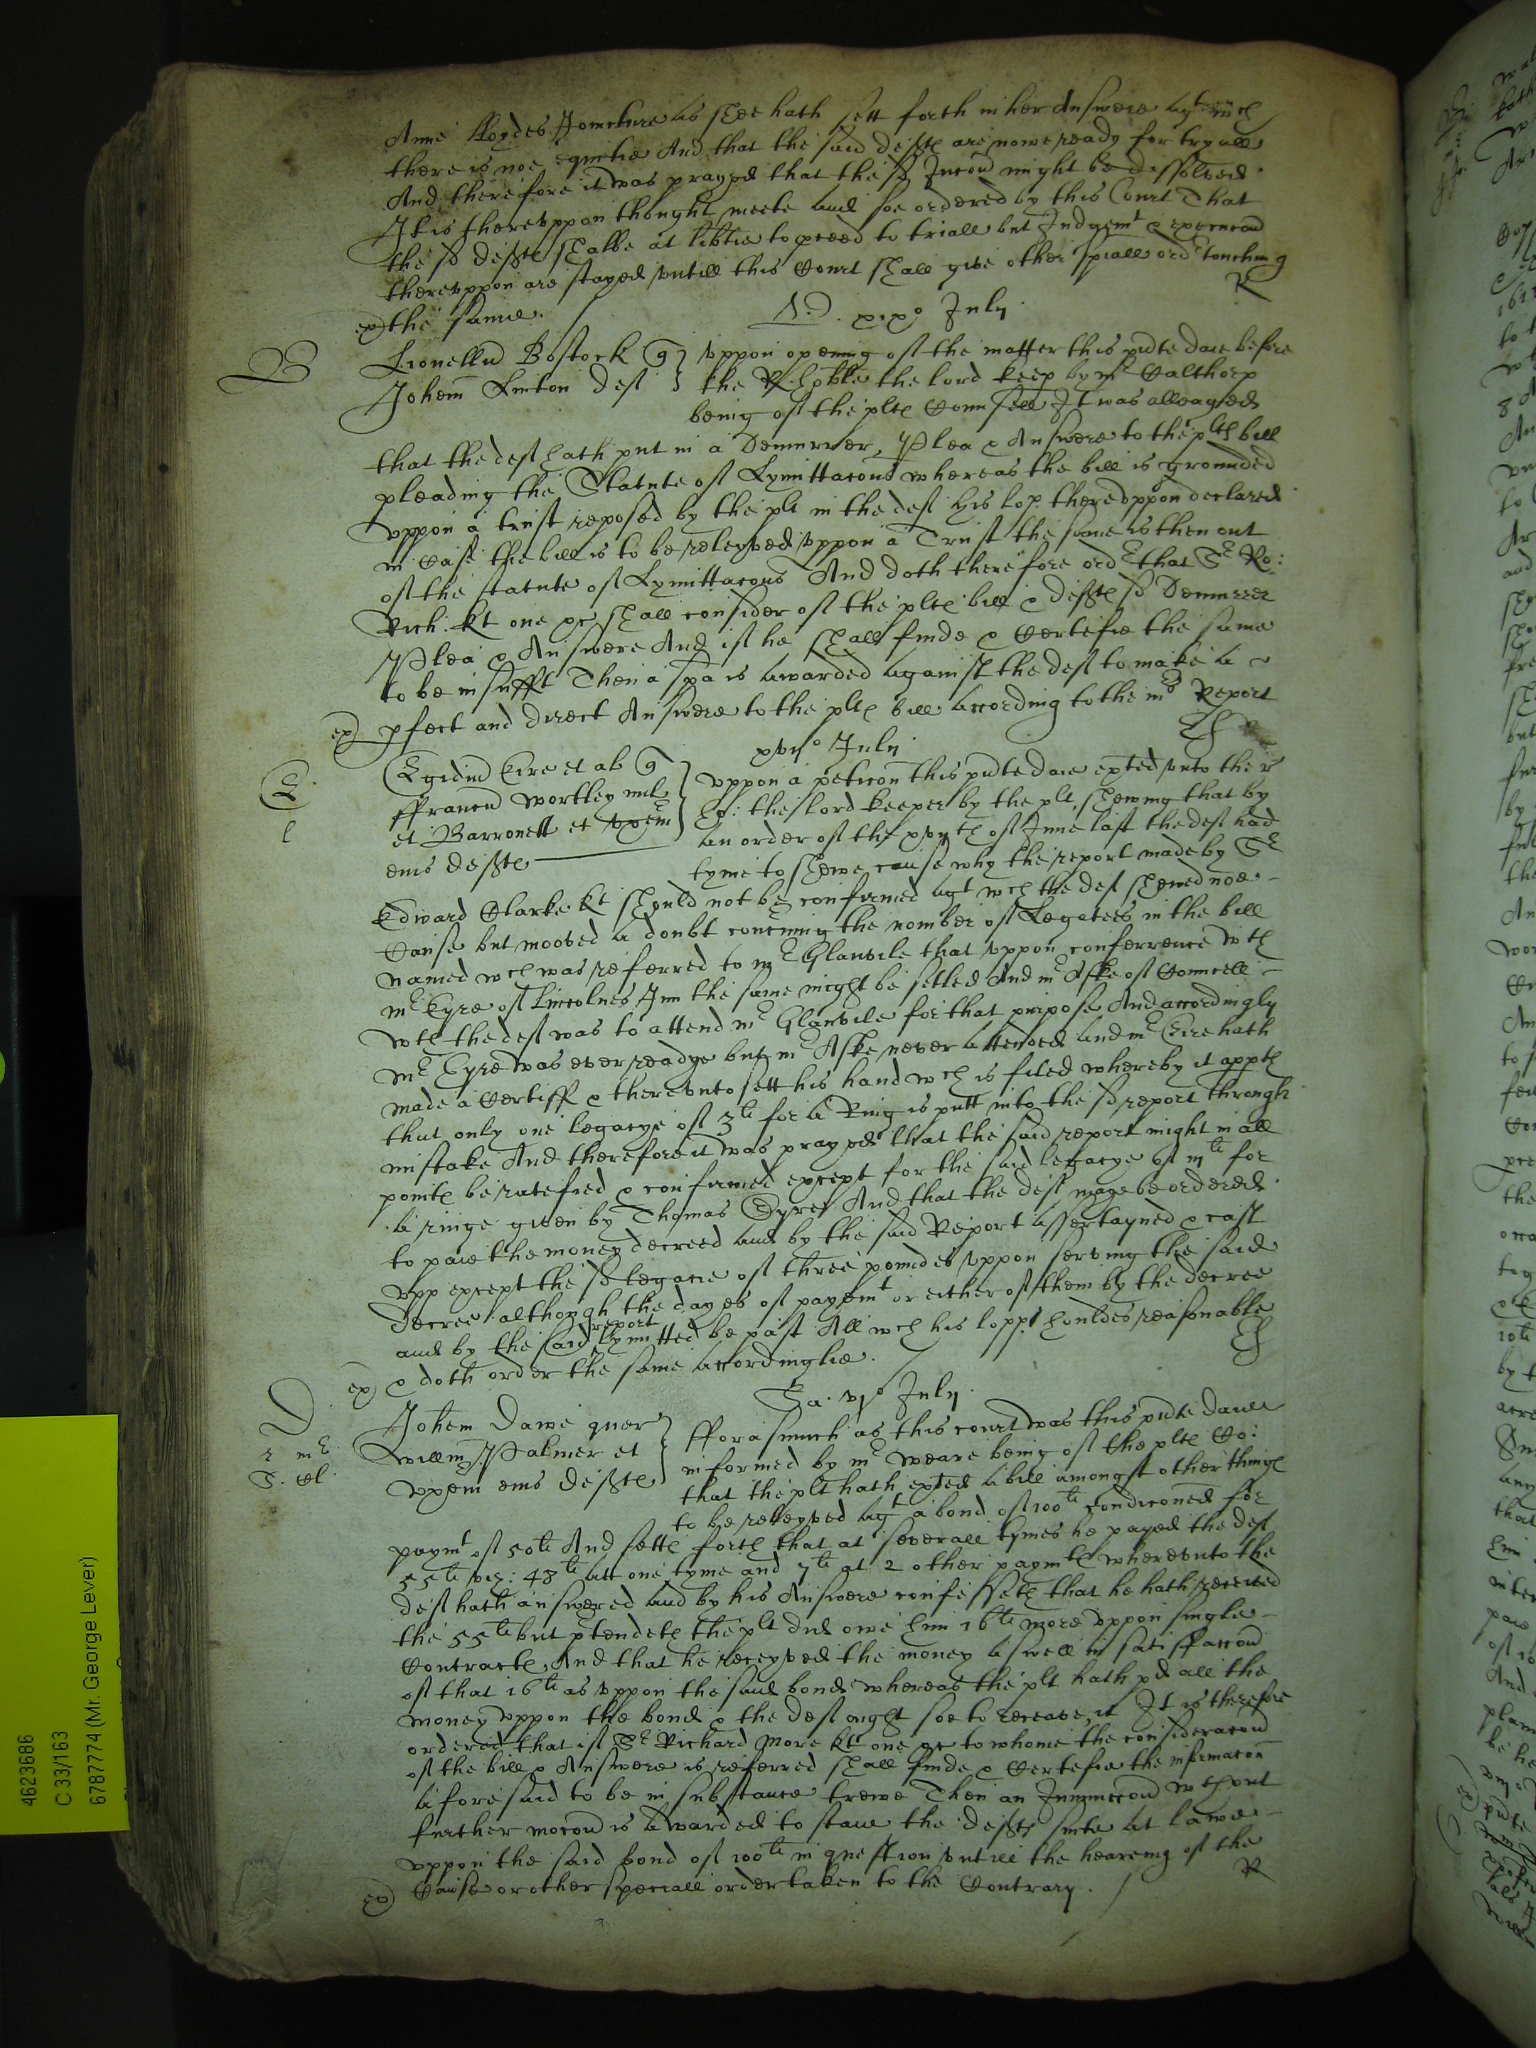 Anne Lloydes Joincture as shee hath sett forth in her Answere agt. wch
there is noe equitie And that the said defts are nowe ready for tryall
And therefore it was prayed that the sd Iniuncon might be dissolved
It is thereuppon thought meete and soe ordered by this Court That
the sd defts shalbe at libtie to pceed to triall but Judgemt & execucon
thereuppon are stayed untill this Court shall give other spiall ordr touching
ex the same. R
July
B Lionellus Bostock q uppon opening of the matter this pnte daie before
Johem Linton deft the R. Hoble the lord keep by mr Calthorp
being of the plts Counsell It was alleaged
that the deft hath put in a Demurrer, Plea & Answere to the plts bill
pleading the Statute of Lymittacons whereas the bill is grounded
uppon a trust reposed by the plt in the deft his lop. thereuppon declared
in Case the bill is to be releyved uppon a Trust the same is then out
of the statute of Lymittacons And doth therefore ordr that Sr Ro:
Rich. Kt one &c shall consider of the plts bill & defts sd Demurrer
Plea & Answere And if he shall finde & Certefie the same
to be insufft Then a spa is awarded against the deft to make a
ex pfect and direct Answere to the plts bill according to the mrs Report
July
E Egidius Eire et al q uppon a peticon this pnte daie exted unto the r
ffrancu Wortley mil ho: the lord keeper by the plt, shewing that by
et Barronett et an order of the of June last the deft had
eius defts tyme to shewe cause why the report made by Sr
Edward Clarke Kt should not be confirmed agt wch the deft shewed noe
Cause but mooved a doubt concerning the nomber of Legatees in the bill
named wch was referred to mr Glanvile that uppon conferrence wth
mr Eyre of Lincolnes Inn the same might be setled And mr Aske of Councell
wth the deft was to attend mr Glanvile for that purpose And accordingly
mr Eyre was ever readye but mr Aske never attended and mr Eire hath
made a Certiff & thereunto sett his hand wch is filed whereby it appth
that only one legacye of 3li for a Ring is putt into the sd report through
mistake And therefore it was prayed that the said report might in all
points be ratefied & confirmed except for the said legacye of iijli for
a ringe given by Thomas Eyre And that the deft maye be ordered
to paie the money decreed and by the said Report assertayned & cast
upp except the sd legacie of three poundes uppon serving the said
decree although the dayes of paiemt or either of them by the decree
and by the said report lymitted be past All wch his lopp houldes reasonable
ex & doth order the same accordinglie.
July
D Johem Dawe quer fforasmuch as this court was this pnte daie
Willm Palmer et informed by mr Weare being of the plts Co:
uxem eius defts that the plt hath exted a bill amongst other things
to be releyved agt a bond of 100li condiconed for
paymt of 50li And setts forth that at severall tymes he payed the deft
55li viz: 48li att one tyme and 7li at 2 other paymts whereunto the
deft hath answered and by his Answere confesseth that he hath receiued
the 55li but ptendeth the plt did owe him 16li more uppon single
Contracts, And that he receyved the money aswell in satisfaccon
of that 16li as uppon the said bond whereas the plt hath pd all the
money uppon the bond & the deft ought soe to receave it It is therefore
ordered that if Sr Richard More kt one &c to whome the consideracon
of the bill & Answere is referred shall finde & Certefie the informacon
aforesaid to be in substance trewe Then an Iniunccon wthout
further mocon is awarded to staie the defts suite at lawe
uppon the said bond of 100li in question untill the hearing of the
ex Cause or other speciall order taken to the Contrary. R
4623686
C 33/163
6787774 (Mr. George Lever)